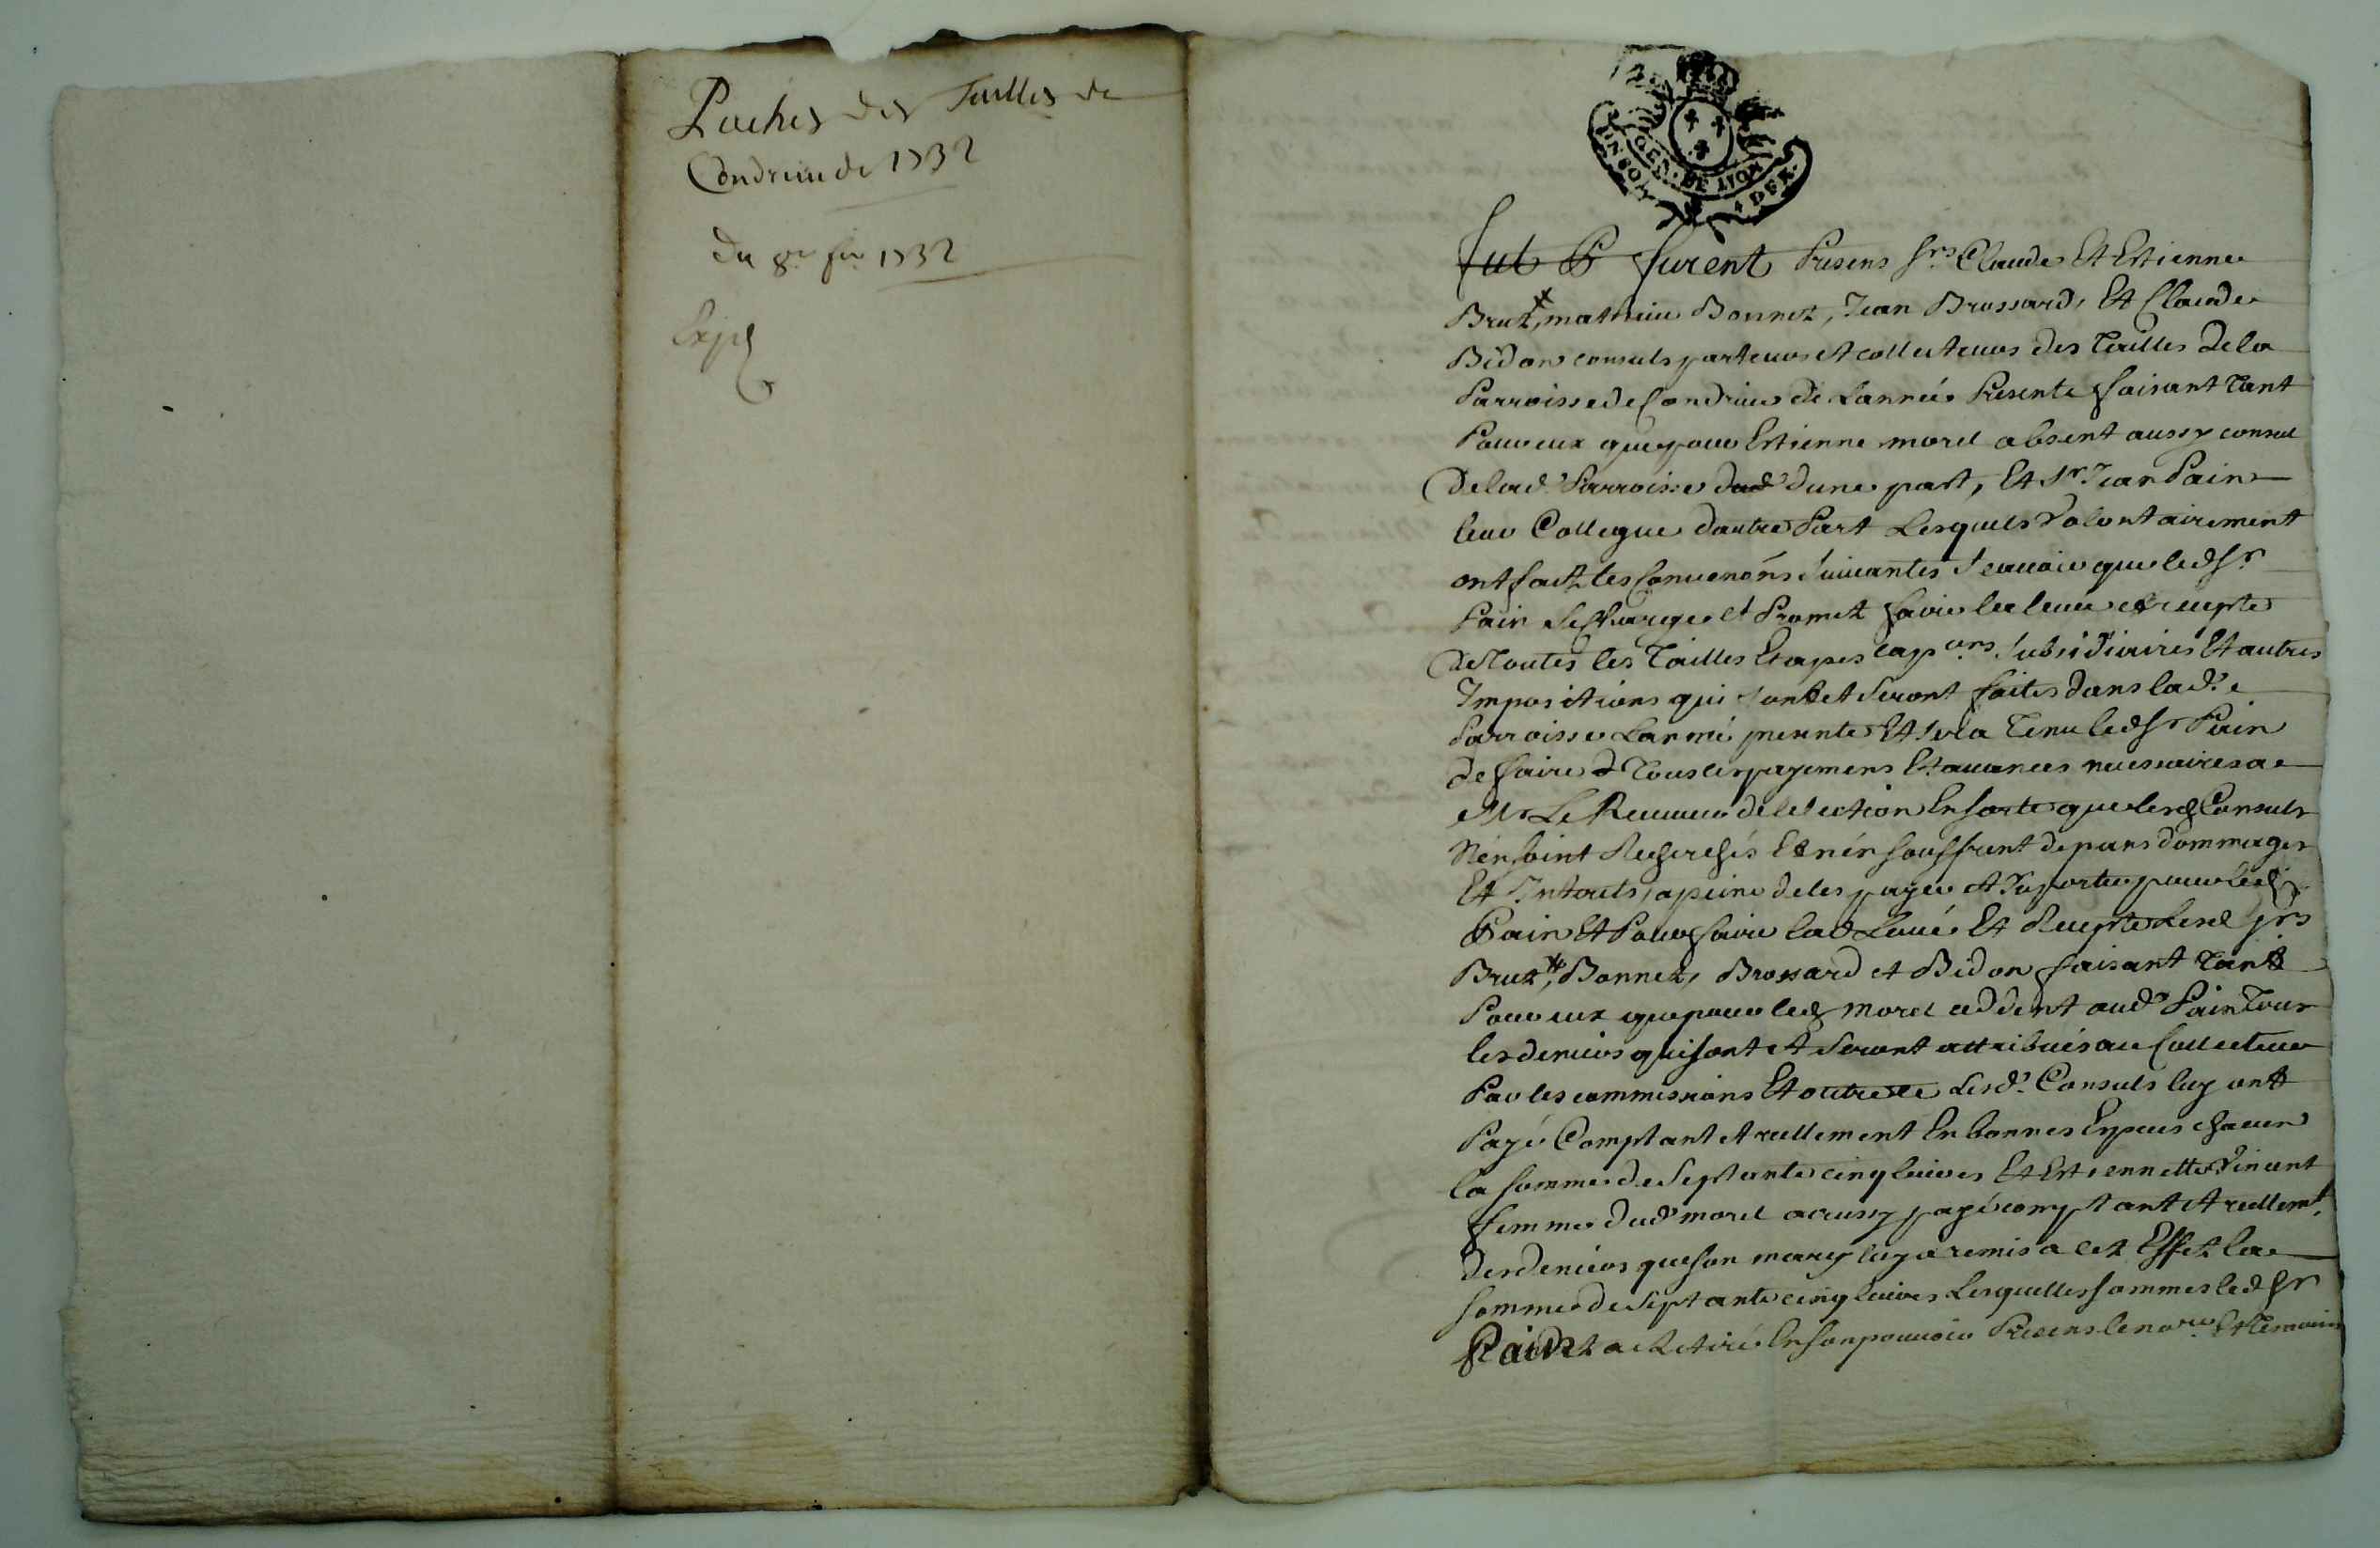 Paches des Tailles de
Condrieu de 1732
du 8e fer 1732
Expé
GEN. DE LYON
UN SOL 4 DEN.
fut P furent Presens Srs Claude Et Estienne
Brut, mathieu Bonnet, Jean Brossard, Et Claude
Bidon consuls porteurs et collecteurs des Tailles de la
Parroisse de Condrieu de Lannée Presente faisant tant
Pour eux que pour Estienne morel absent aussy consul
De lad. Parroisse dud dune part, Et Sr Jean Pain
leur Collegue dautre Part Lesquels Volontairement
ont fait les Conuenõns Suiuantes Scauoir que led Sr
Pain Se Charge et Promet faire la leuée et recepte
De Toutes les Tailles Etapes capons Subsidiaires Et autres
Impositions qui sont et seront faites dans lad.e
Parroisse Lannée presente Et sera Tenu led Sr Pain
De faire Tous les payemens Et auances necessaires a
Mr Le Receueur de lelection En sorte que lesd Consuls
Nen soint Recherchés Et nén souffrent depans dommages
Et Interets, a peine de les payer et suporter pour led
Pain Et Pour faire lad Leuée Et Recepte Lesd Srs
Brut, Bonnet, Brossard et Bidon faisant tant
Pour eux que pour led morel ceddent aud Pain Tous
les deniers qui sont et seront attribués au Collecteur
Par les commissions Et outre ce Lesd. Consuls luy ont
Payé Comptant et reellement En bonnes Especes chacun
la somme de Septante cinq liures Et Estiennette Vinant
femme dud morel a aussy payé comptant et reellemt.
des deniers que son mary luy a remis a cet Effet la
somme de Septante cinq liures Lesquelles sommes led Sr
Pain a Retiré En son pouuoir Presens le nore Et Temoins